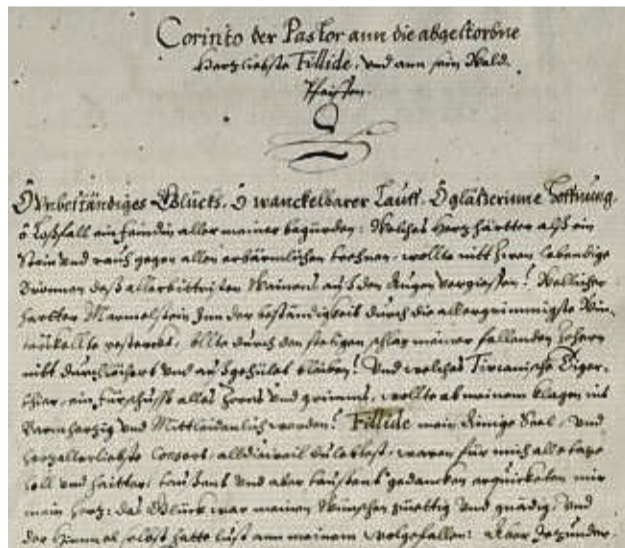 Corinto der Pastor ann die abgestorbne
Hertzliebste Fillide, und ann sein Wald
Pfeiffen.
Ô Vnbeständiges Glücks, Ô wanckelbarer Lauff, Ô gläserinne Hoffnung,
ein feindin aller meiner begürden: Welches Hertz härtter alß ein
Stein und rauch gegen allen erbärmlichen threnen, wollte nitt lebendige
Bronnen deß allerbittristen Wainens auß den Augen vergiessen? Wellicher
hartter Marmelstein Inn der beständigkeit durch die allergrimmigste
durch den stetigen schlag meiner fallenden Zehern
nitt durchlöchert und außgehület bleiben? Und welches Tircanische Tiger
thier, ein alles Zorns und grimms, wollte ab meinem klagen nit
Barmhertzig und Mittleidenlich werden? Fillide mein Ainige Seel, und
hertzallerliebste alldieweil du lebtest, waren für mich alle tage
hell und haitter, tausent und aber tausent gedancken erquicketen mir
mein hertz: das Glück war meinen Wünschen günstig und gnädig, und
der Himmel selbst hatte lust ann meinem wolgefallen: Aber Jetzunder